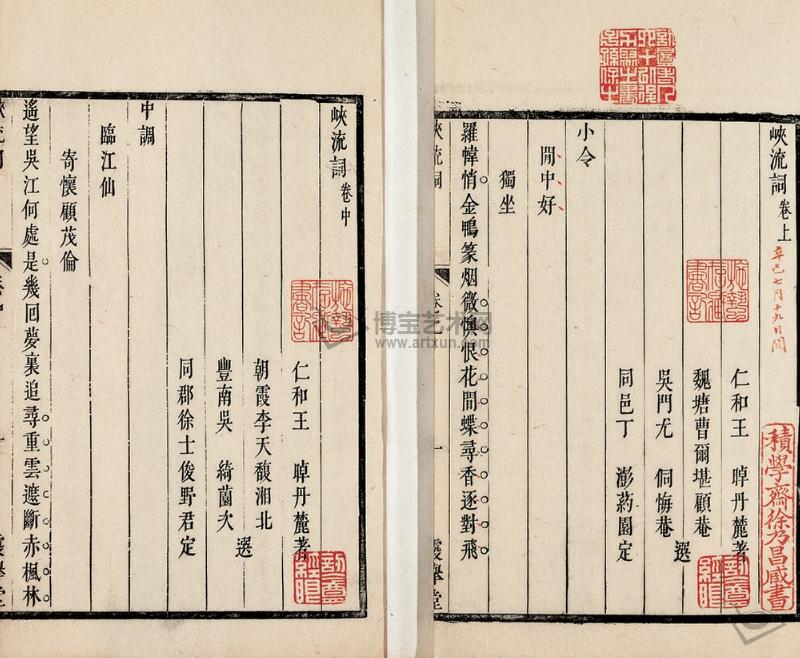 峽流詞卷上
辛巳七月十九日閱
仁和王 晫丹麓著
魏塘曹爾堪顧菴
吳門尤 侗悔菴 選
同邑丁 澎葯園定
小令
閒中好
獨坐
羅幃悄金鴨篆烟微懊恨花間蝶尋香逐對飛
峽流詞
卷上
一
霞舉堂
積學齋徐乃昌藏書
峽流詞卷中
仁和王 晫丹麓著
朝霞李天馥湘北
豐南吳 綺薗次 選
同郡徐士俊野君定
中調
臨江仙
寄懷顧茂倫
遥望吳江何處是幾回夢裏追尋重雲遮斷赤楓林
峽流詞
一
霞舉堂
博宝艺术网
www.artxun.com